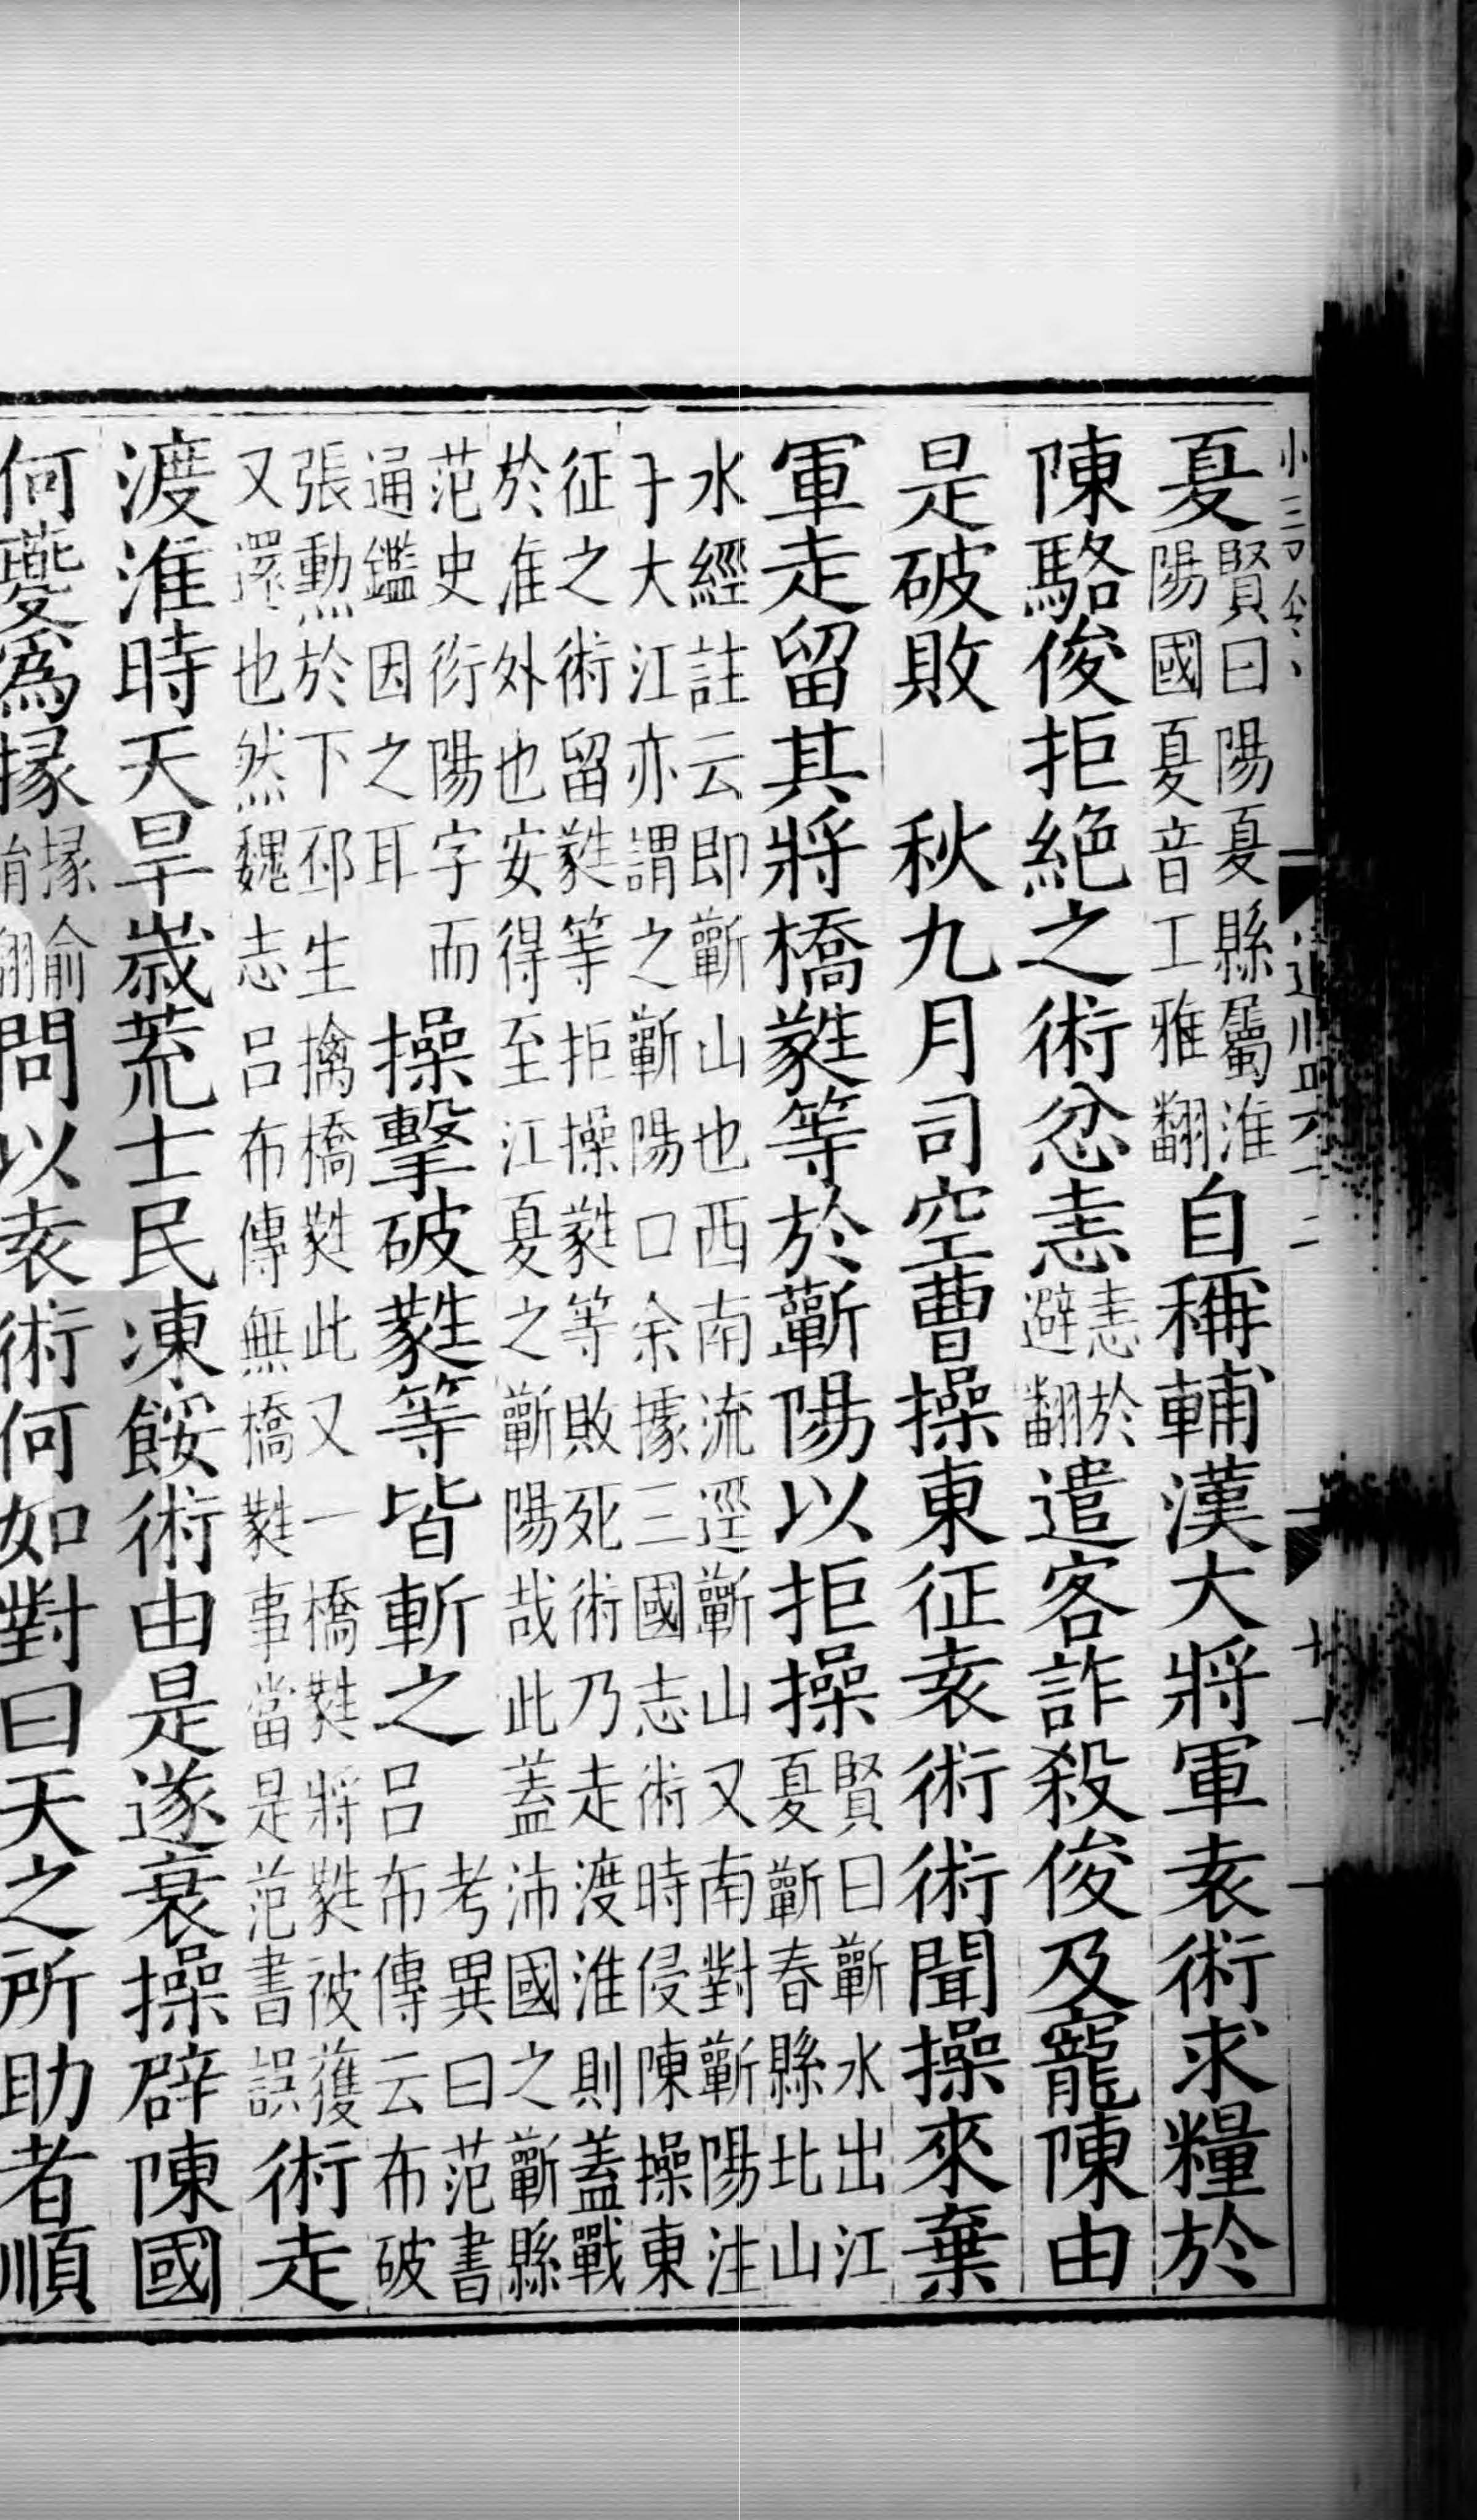 夏
賢曰陽夏縣屬淮
陽國夏音工雅翻
自稱輔漢大將軍袁術求糧於
陳駱俊拒絶之術忿恚
恚於
避翻
遣客詐殺俊及寵陳由
是破敗　秋九月司空曹操東征袁術術聞操來棄
軍走留其將橋蕤等於蘄陽以拒操
賢曰蘄水出江
夏蘄春縣北山
水經註云即蘄山也西南流逕蘄山又南對蘄陽注
于大江亦謂之蘄陽口余據三國志術時侵陳操東
征之術留蕤等拒操蕤等敗死術乃走渡淮則蓋戰
於淮外也安得至江夏之蘄陽哉此蓋沛國之蘄縣
范史衍陽字而
通鑑因之耳
操擊破蕤等皆斬之
考異曰范書
呂布傳云布破
張勳於下邳生擒橋蕤此又一橋蕤將蕤被獲
又還也然魏志呂布傳無橋蕤事當是范書誤
術走
渡淮時天旱歲荒士民凍餒術由是遂衰操辟陳國
何夔爲掾
掾俞
翻
問以袁術何如對曰天之所助者順